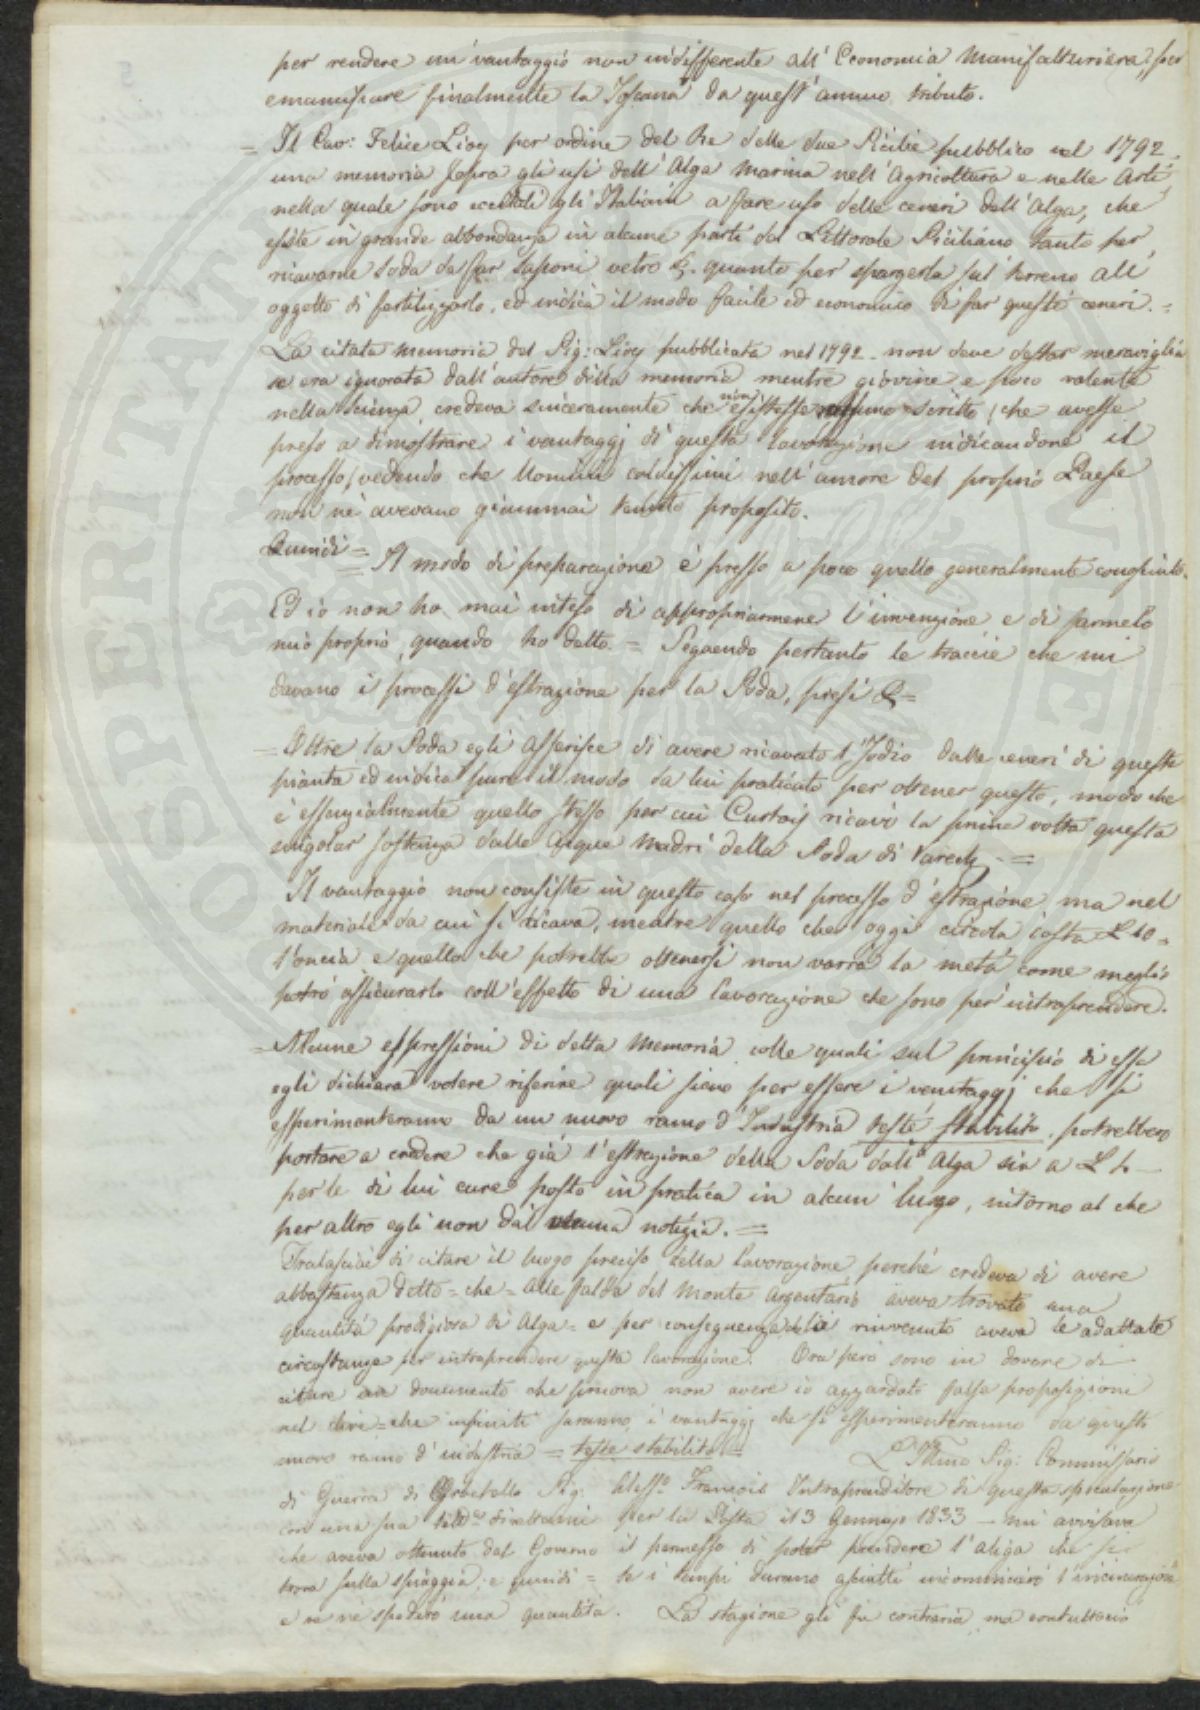 per rendere un vantaggio non indifferente all'Economia Manifatturiera, per
emancipare finalmente la Toscana da quest'annuo tributo.
= Il Cav: Felice Lioy per ordine del Re delle due Sicilie pubblicò nel 1792 -
una memoria sopra gli usi dell'Alga Marina nell'Agricoltura e nelle Arti,
nella quale sono eccitati gl'Italiani a fare uso delle ceneri dell'Alga, che
esiste in grande abbondanza in alcune parti del Littorale Siciliano tanto per
ricavarne Soda da far Saponi, vetro &. quanto per spargerla sul terreno all'
oggetto di fertilizzarlo, ed indica il modo facile ed economico di far queste ceneri. =
La citata memoria del Sig: Lioy pubblicata nel 1792 - non deve destar meraviglia
se era ignorata dall'autore della memoria mentre giovine e poco valente
nella scienza, credeva sinceramente che non esistesse scritto (che avesse
preso a dimostrare i vantaggj di questa lavorazione indicandone il
processo) vedendo che Uomini caldissimi nell'amore del proprio Paese
non ne avevano giammai tenuto proposito.
Quindi = Il modo di preparazione è presso a poco quello generalmente conosciuto.
Ed io non ho mai inteso di appropriarmene l'invenzione e di farmelo
mio proprio, quando ho detto = Seguendo pertanto le traccie che mi
davano i processi d'estrazione per la Soda, presi & =
= Oltre la Soda egli asserisce di avere ricavato l'Jodio dalle ceneri di queste
pianta ed indica pure il modo da lui praticato per ottener questo, modo che
è essenzialmente quello stesso per cui Curtois ricavò la prima volta questa
singolar sostanza dalle Acque Madri della Soda di Varech. =
Il vantaggio non consiste in questo caso nel processo d'estrazione, ma nel
materiale da cui si ricava, mentre quello che oggi circola costa £ 10 =
l'oncia e quello che potrebbe ottenersi non varrà la metà come meglio
potrò assicurarlo coll'effetto di una lavorazione che sono per intraprendere.
= Alcune espressioni di detta Memoria colle quali sul principio di essa
egli dichiara volere riferire quali siano per essere i vantaggj che si
esperimenteranno da un nuovo ramo d'Industria testé stabilito, potrebbero
portare a credere che già l'estrazione della Soda dall'Alga sia a
per le di lui cure posto in pratica in alcun luogo, intorno al che
per altro egli non dà veruna notizia. =
Tralasciai di citare il luogo preciso della lavorazione perché credeva di avere
abbastanza detto = che = alle falda del Monte Argentaro aveva trovato una
quantità prodigiosa di Alga = e per conseguenza rinvenuto aveva le adattate
circostanze per intraprendere questa lavorazione. Ora però sono in dovere di
citare un documento che prova non avere io azzardato false proposizioni
nel dire = che infiniti saranno i vantaggj che si esperimenteranno da questo
nuovo ramo d'industria = testé stabilito = L'Illmo Sig: Commissario
di Guerra di Orbetello Sig: Aless.o François Intraprenditore di questa speculazione
con una sua direttami per la Posta il 3 Gennajo 1833 - mi avvisava
che aveva ottenuto dal Governo il permesso di poter prendere l'aliga che si
trova sulla spiaggia, e quindi = se i tempi durano asciutti incomincierò l'incinerazione
e ve ne spedirò una quantità. La stagione gli fu contraria, ma contuttociò